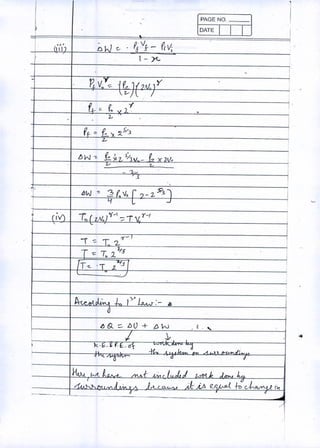 PAGE NO.
DATE
(iii) ΔW = P_f V_f - P_i V_i
1 - γ
P_f V_0^γ = (P_0/2)(2V_0)^γ
P_f = P_0/2 × 2^γ
P_f = P_0/2 × 2^5/3
ΔW = P_0/2 × 2^5/3 V_0 - P_0/2 × 2V_0
- 2/3
ΔW = 3/4 P_0 V_0 [2 - 2^5/3]
(iv) T_0 (2V_0)^γ-1 = T V_0^γ-1
T = T_0 2^γ-1
T = T_0 2^2/3
T = T_0 2^2/3
According to 1st Law :-
ΔQ = ΔU + ΔW
K.E. & P.E. of work done by
the system the system on surroundings
Here, we have not included work done by
surroundings because it is equal to change in